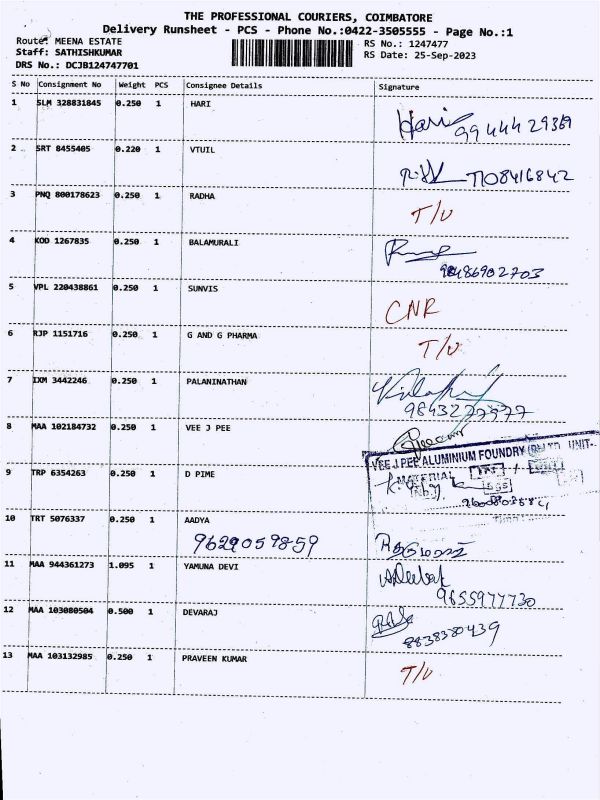 THE PROFESSIONAL COURIERS, COIMBATORE
Delivery Runsheet - PCS - Phone No.:0422-3505555 - Page No.:1
Route: MEENA ESTATE
RS No.: 1247477
Staff: SATHISHKUMAR
RS Date: 25-Sep-2023
DRS No.: DCJB124747701
S No Consignment No Weight PCS Consignee Details Signature
1 SLM 328831845 0.250 1 HARI
Hari 99444 29369
2 SRT 8455405 0.220 1 VTUIL
7708416842
3 PNQ 800178623 0.250 1 RADHA
T/U
4 KOD 1267835 0.250 1 BALAMURALI
9486902703
5 VPL 220438861 0.250 1 SUNVIS
CNR
6 RJP 1151716 0.250 1 G AND G PHARMA
T/U
7 IXM 3442246 0.250 1 PALANINATHAN
9843277977
8 MAA 102184732 0.250 1 VEE J PEE
VEE J PEE ALUMINIUM FOUNDRY UNIT-
MATERIAL
9 TRP 6354263 0.250 1 D PIME
10 TRT 5076337 0.250 1 AADYA
9629059859
11 MAA 944361273 1.095 1 YAMUNA DEVI
9655977730
12 MAA 103080504 0.500 1 DEVARAJ
8838380439
13 MAA 103132985 0.250 1 PRAVEEN KUMAR
T/U